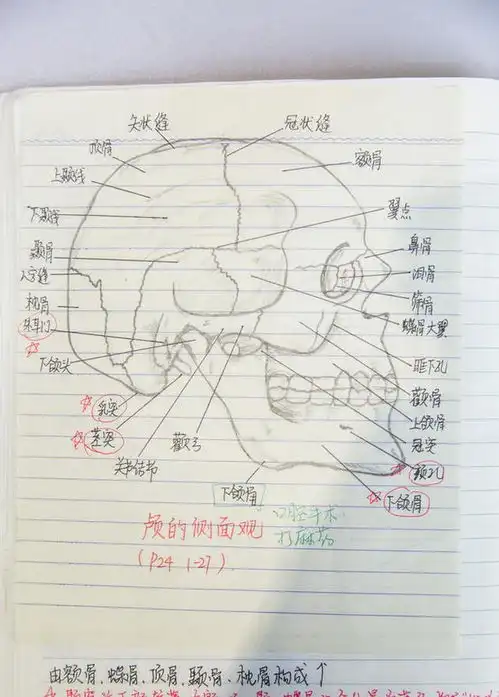 矢状缝
冠状缝
顶骨
额骨
上颞线
下颞线
翼点
颞骨
鼻骨
人字缝
泪骨
枕骨
筛骨
外耳门
蝶骨大翼
下颌头
眶下孔
颧骨
乳突
上颌骨
茎突
颧弓
冠突
关节结节
颏孔
下颌角
下颌骨
颅的侧面观
口腔手术
打麻药
(P24 1-27)
由额骨、蝶骨、顶骨、颞骨、枕骨构成↑